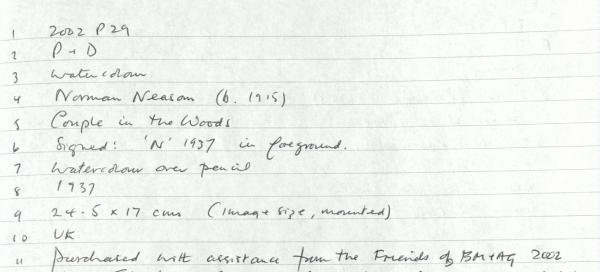 1 2002 P 29
2 P + D
3 Watercolour
4 Norman Neasom (b. 1915)
5 Couple in the Woods
6 Signed: 'N' 1937 in foreground.
7 Watercolour over pencil
8 1937
9 24.5 x 17 cms (image size, mounted)
10 UK
11 purchased with assistance from the Friends of BM+AG 2002